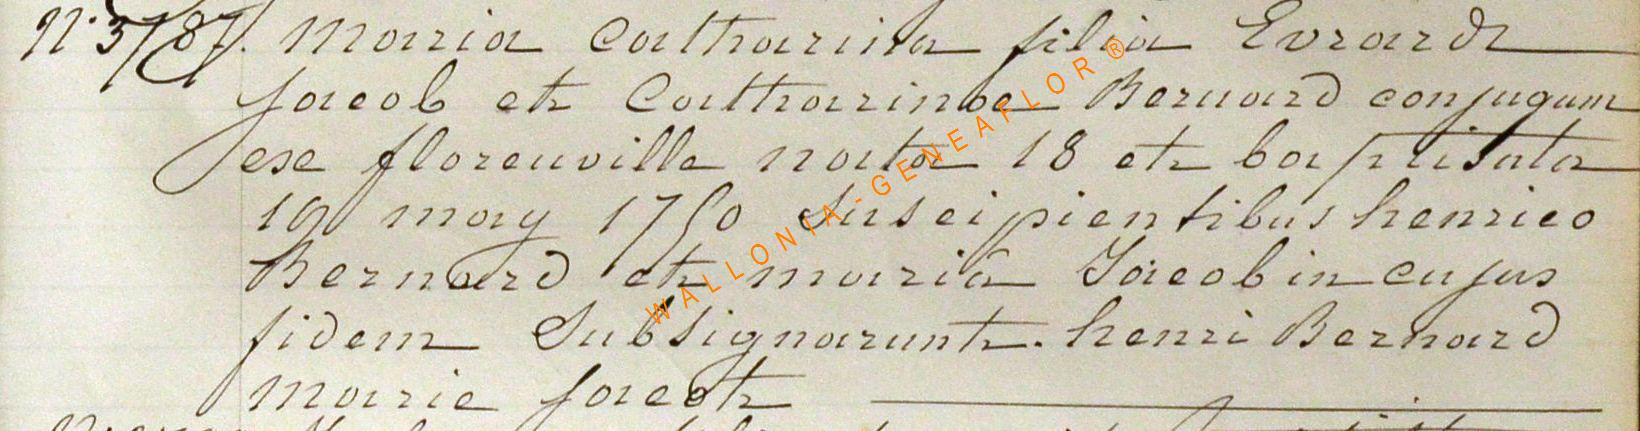 N.° 3787. Maria Catharina filia Evrardi
Jacob et Catharinae Bernard conjugum
exe florenville nata 18 et baptisata
19 may 1750 Suscipientibus henrico
Bernard et mariâ Jacob in cujus
fidem Subsignarunt. henri Bernard
marie jacob
WALLONIA-GENEAFLOR®